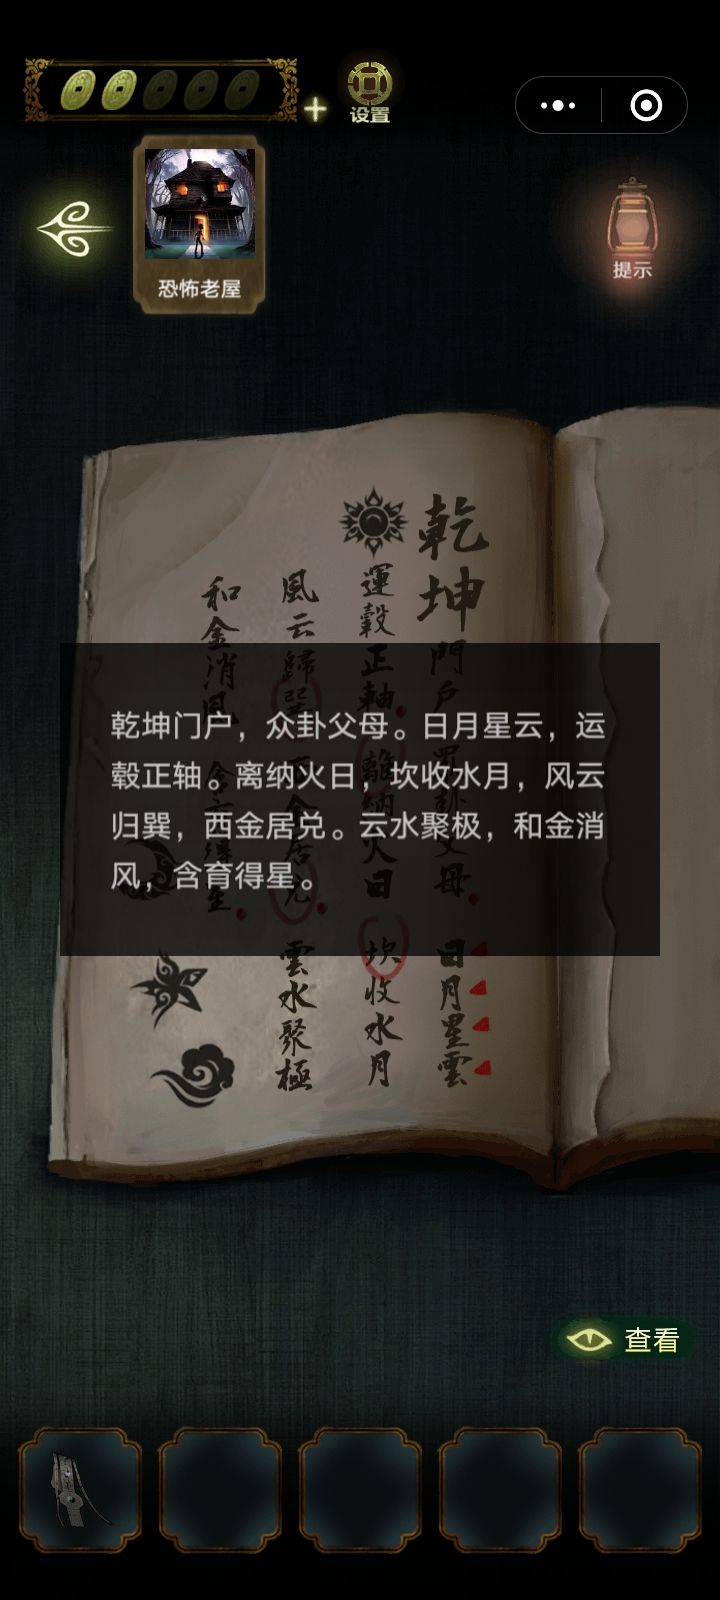 设置
恐怖老屋
提示
乾坤門戶
母 日月星雲
運毂正軸
火日 坎收水月
風云歸巽
居兑 雲水聚極
和金消風
乾坤门户，众卦父母。日月星云，运
毂正轴。离纳火日，坎收水月，风云
归巽，西金居兑。云水聚极，和金消
风，含育得星。
查看